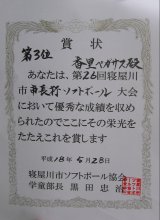 賞状
第3位
香里ペガサス殿
あなたは、第26回寝屋川
市民ソフトボール大会
において優秀な成績を収め
られたのでここにその栄光を
たたえこれを賞します
平成18年5月28日
寝屋川市ソフトボール協会
学童部長 黒田忠治